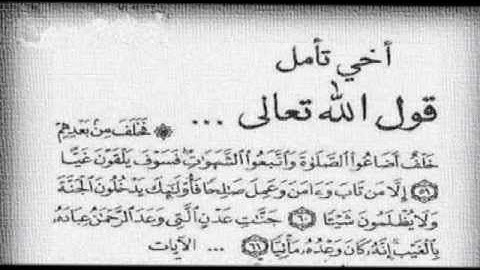 أخي تأمل
قول الله تعالى ...
۞ فَخَلَفَ مِنۢ بَعۡدِهِمۡ
خَلۡفٌ أَضَاعُواْ ٱلصَّلَوٰةَ وَٱتَّبَعُواْ ٱلشَّهَوَٰتِۖ فَسَوۡفَ يَلۡقَوۡنَ غَيًّا
٥٩ إِلَّا مَن تَابَ وَءَامَنَ وَعَمِلَ صَٰلِحٗا فَأُوْلَٰٓئِكَ يَدۡخُلُونَ ٱلۡجَنَّةَ
وَلَا يُظۡلَمُونَ شَيۡـٔٗا ٦٠ جَنَّٰتِ عَدۡنٍ ٱلَّتِي وَعَدَ ٱلرَّحۡمَٰنُ عِبَادَهُۥ
بِٱلۡغَيۡبِۚ إِنَّهُۥ كَانَ وَعۡدُهُۥ مَأۡتِيّٗا ٦١ ... الآيات